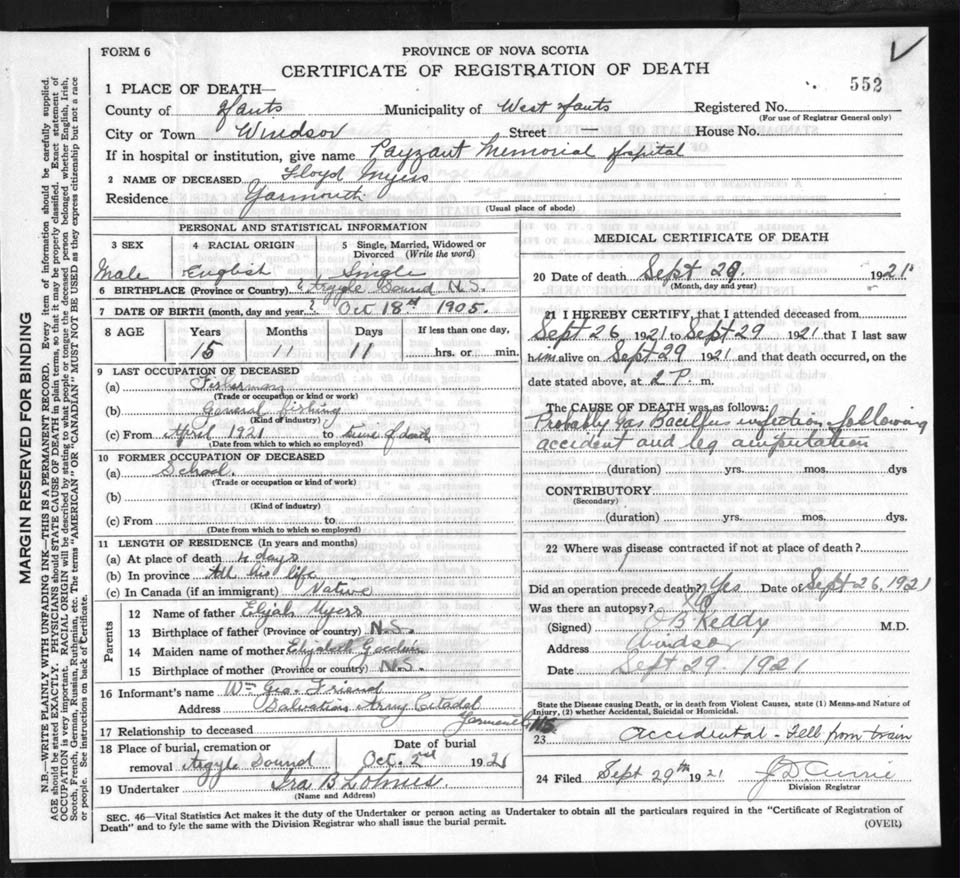 FORM 6
PROVINCE OF NOVA SCOTIA
CERTIFICATE OF REGISTRATION OF DEATH
552
1 PLACE OF DEATH—
County of Hants Municipality of West Hants Registered No.
(For use of Registrar General only)
City or Town Windsor Street — House No.
If in hospital or institution, give name Payzant Memorial Hospital
2 NAME OF DECEASED Floyd Myers
Residence Yarmouth
(Usual place of abode)
PERSONAL AND STATISTICAL INFORMATION
3 SEX 4 RACIAL ORIGIN 5 Single, Married, Widowed or Divorced (Write the word)
Male English Single
6 BIRTHPLACE (Province or Country) Argyle Sound N.S.
7 DATE OF BIRTH (month, day and year) Oct 18th 1905.
8 AGE Years Months Days If less than one day,
15 11 11 hrs. or min.
9 LAST OCCUPATION OF DECEASED
(a) Fisherman
(Trade or occupation or kind of work)
(b) General fishing
(Kind of industry)
(c) From April 1921 to time of death
(Date from which to which so employed)
10 FORMER OCCUPATION OF DECEASED
(a) School.
(Trade or occupation or kind of work)
(b)
(Kind of industry)
(c) From to
(Date from which to which so employed)
11 LENGTH OF RESIDENCE (In years and months)
(a) At place of death 4 days
(b) In province All his life
(c) In Canada (if an immigrant) Native
Parents
12 Name of father Elijah Myers
13 Birthplace of father (Province or country) N.S.
14 Maiden name of mother Elizabeth Goodwin
15 Birthplace of mother (Province or country) N.S.
16 Informant's name Wm Geo. Friend
Address Salvation Army Citadel
Yarmouth
17 Relationship to deceased
18 Place of burial, cremation or removal Argyle Sound
Date of burial Oct. 2nd 1921
19 Undertaker Ira B Lohnes.
(Name and Address)
MEDICAL CERTIFICATE OF DEATH
20 Date of death Sept 29. 1921
(Month, day and year)
21 I HEREBY CERTIFY, that I attended deceased from
Sept 26 1921 to Sept 29 1921 that I last saw
him alive on Sept 29 1921 and that death occurred, on the
date stated above, at 2 P. m.
The CAUSE OF DEATH was as follows:
Probably Gas Bacillus infection following
accident and leg amputation
(duration) yrs. mos. dys
CONTRIBUTORY
(Secondary)
(duration) yrs. mos. dys.
22 Where was disease contracted if not at place of death?
Did an operation precede death? Yes Date of Sept 26, 1921
Was there an autopsy? No
(Signed) O B Keddy M.D.
Address Windsor
Date Sept 29. 1921
State the Disease causing Death, or in death from Violent Causes, state (1) Means and Nature of
Injury, (2) whether Accidental, Suicidal or Homicidal.
115
23 Accidental - Fell from train
24 Filed Sept 29th 1921
Division Registrar
SEC. 46—Vital Statistics Act makes it the duty of the Undertaker or person acting as Undertaker to obtain all the particulars required in the "Certificate of Registration of
Death" and to fyle the same with the Division Registrar who shall issue the burial permit.
(OVER)
MARGIN RESERVED FOR BINDING
N.B.—WRITE PLAINLY WITH UNFADING INK—THIS IS A PERMANENT RECORD. Every item of information should be carefully supplied.
AGE should be stated EXACTLY. PHYSICIANS should STATE CAUSE OF DEATH in plain terms, so that it may be properly classified. Exact statement of
OCCUPATION is very important. RACIAL ORIGIN will be described by stating to what people or tongue the deceased person belonged whether English, Irish,
Scotch, French, German, Russian, Ruthenian, etc. The terms "AMERICAN" OR "CANADIAN" MUST NOT BE USED as they express citizenship but not a race
or people. See instructions on back of Certificate.